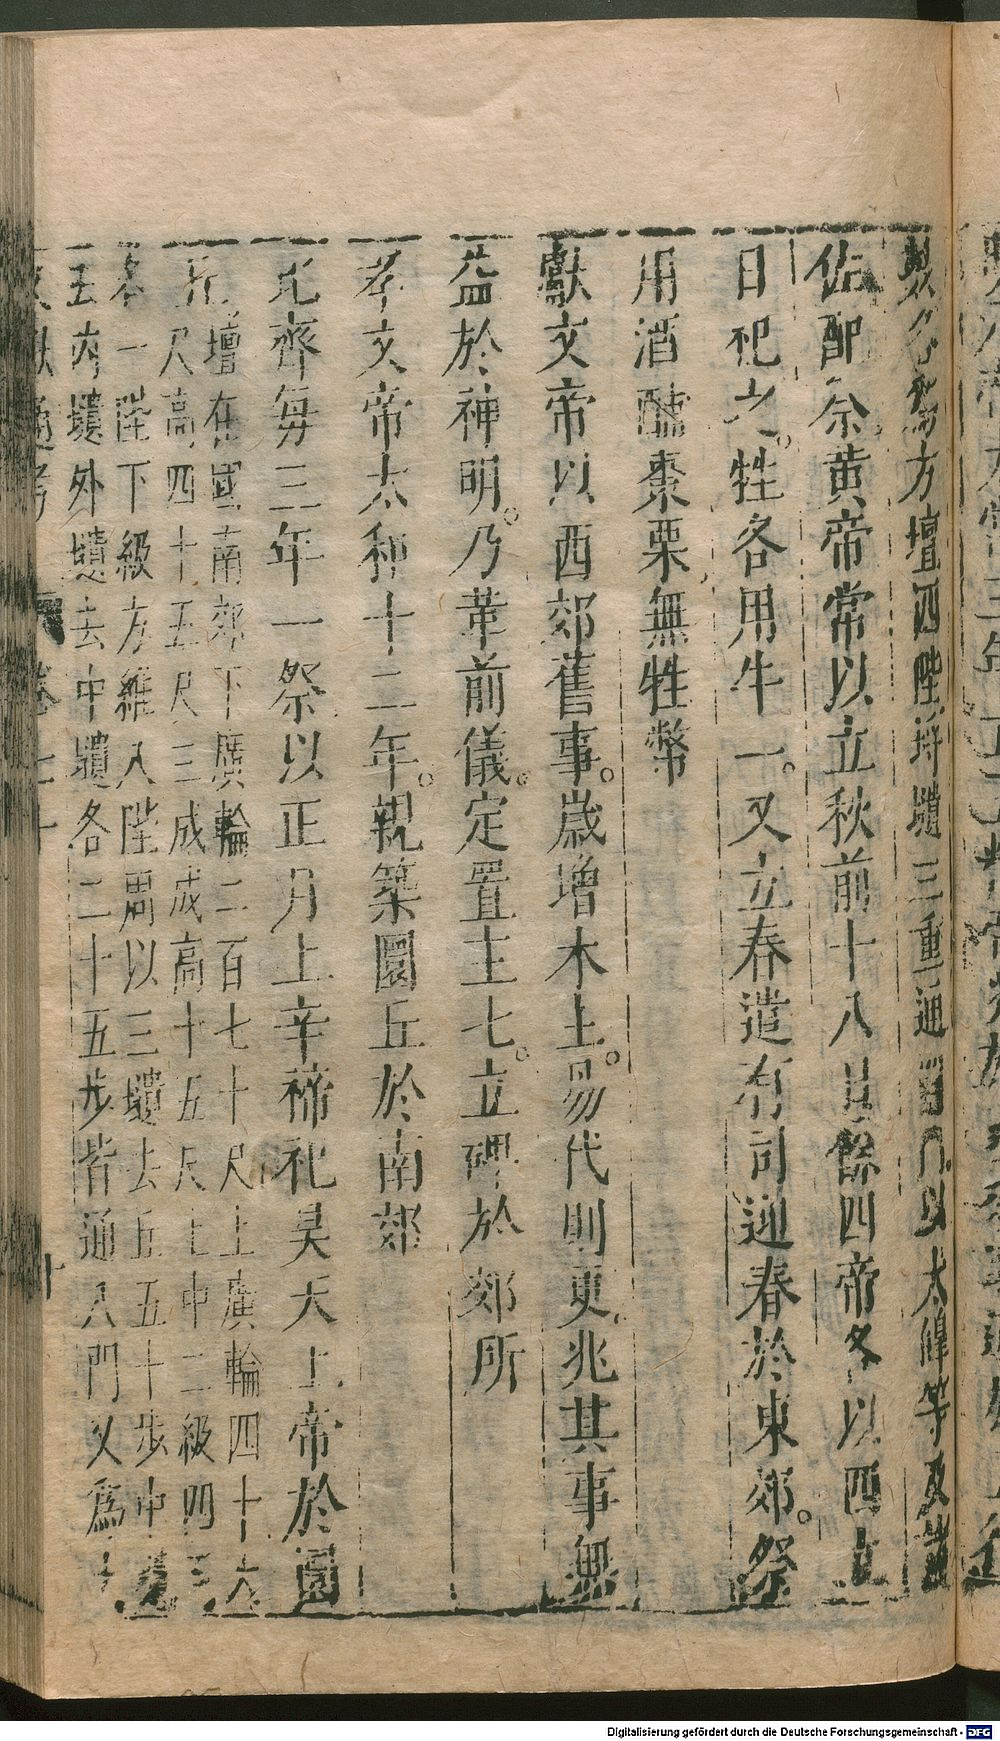 數各爲方壇四陛埒壝三重通四門以太皥等及諸
佐配祭黃帝常以立秋前十八日其餘四帝各以四立
日祀之。牲各用牛一。又立春遣有司迎春於東郊。祭
用酒脯棗栗無牲幣
獻文帝以西郊舊事。歲增木主。易代則更兆其事無
益於神明。乃革前儀。定置主七。立碑於郊所
孝文帝太和十二年。親築圜丘於南郊
北齊每三年一祭以正月上辛禘祀昊天上帝於圜
丘壇在國南郊下廣輪二百七十尺上廣輪四十六
尺高四十五尺三成成高十五尺上中二級四面
各一陛下級方維八陛周以三壝去丘五十步中壝
去內壝外壝去中壝各二十五步皆通八門又爲大
文獻通考 卷七十
十
Digitalisierung gefördert durch die Deutsche Forschungsgemeinschaft - DFG